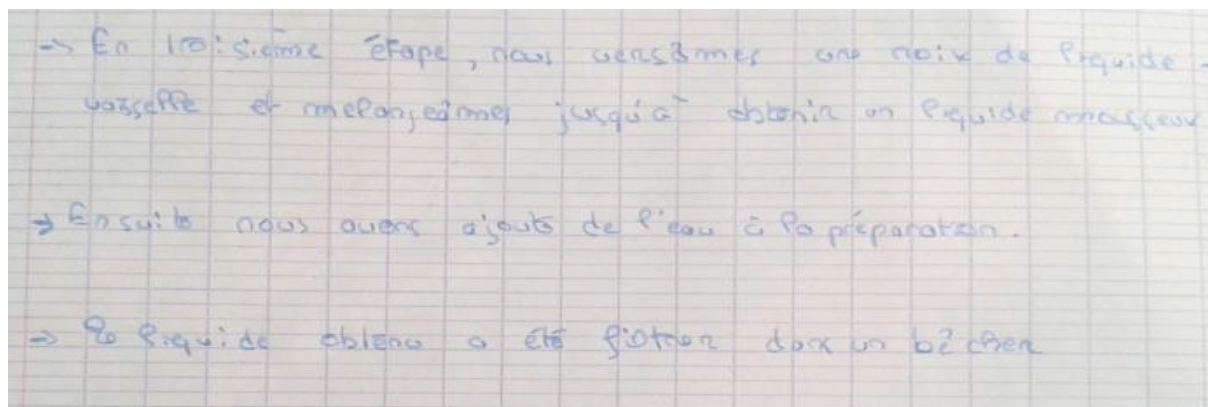 → En troisième étape, nous versâmes une noix de liquide -
vaisselle et melangeâmes jusqu'à obtenir un liquide mousseux
→ Ensuite nous avons ajouté de l'eau à la préparation.
→ Le liquide obtenu a été filtrer dans un bécher